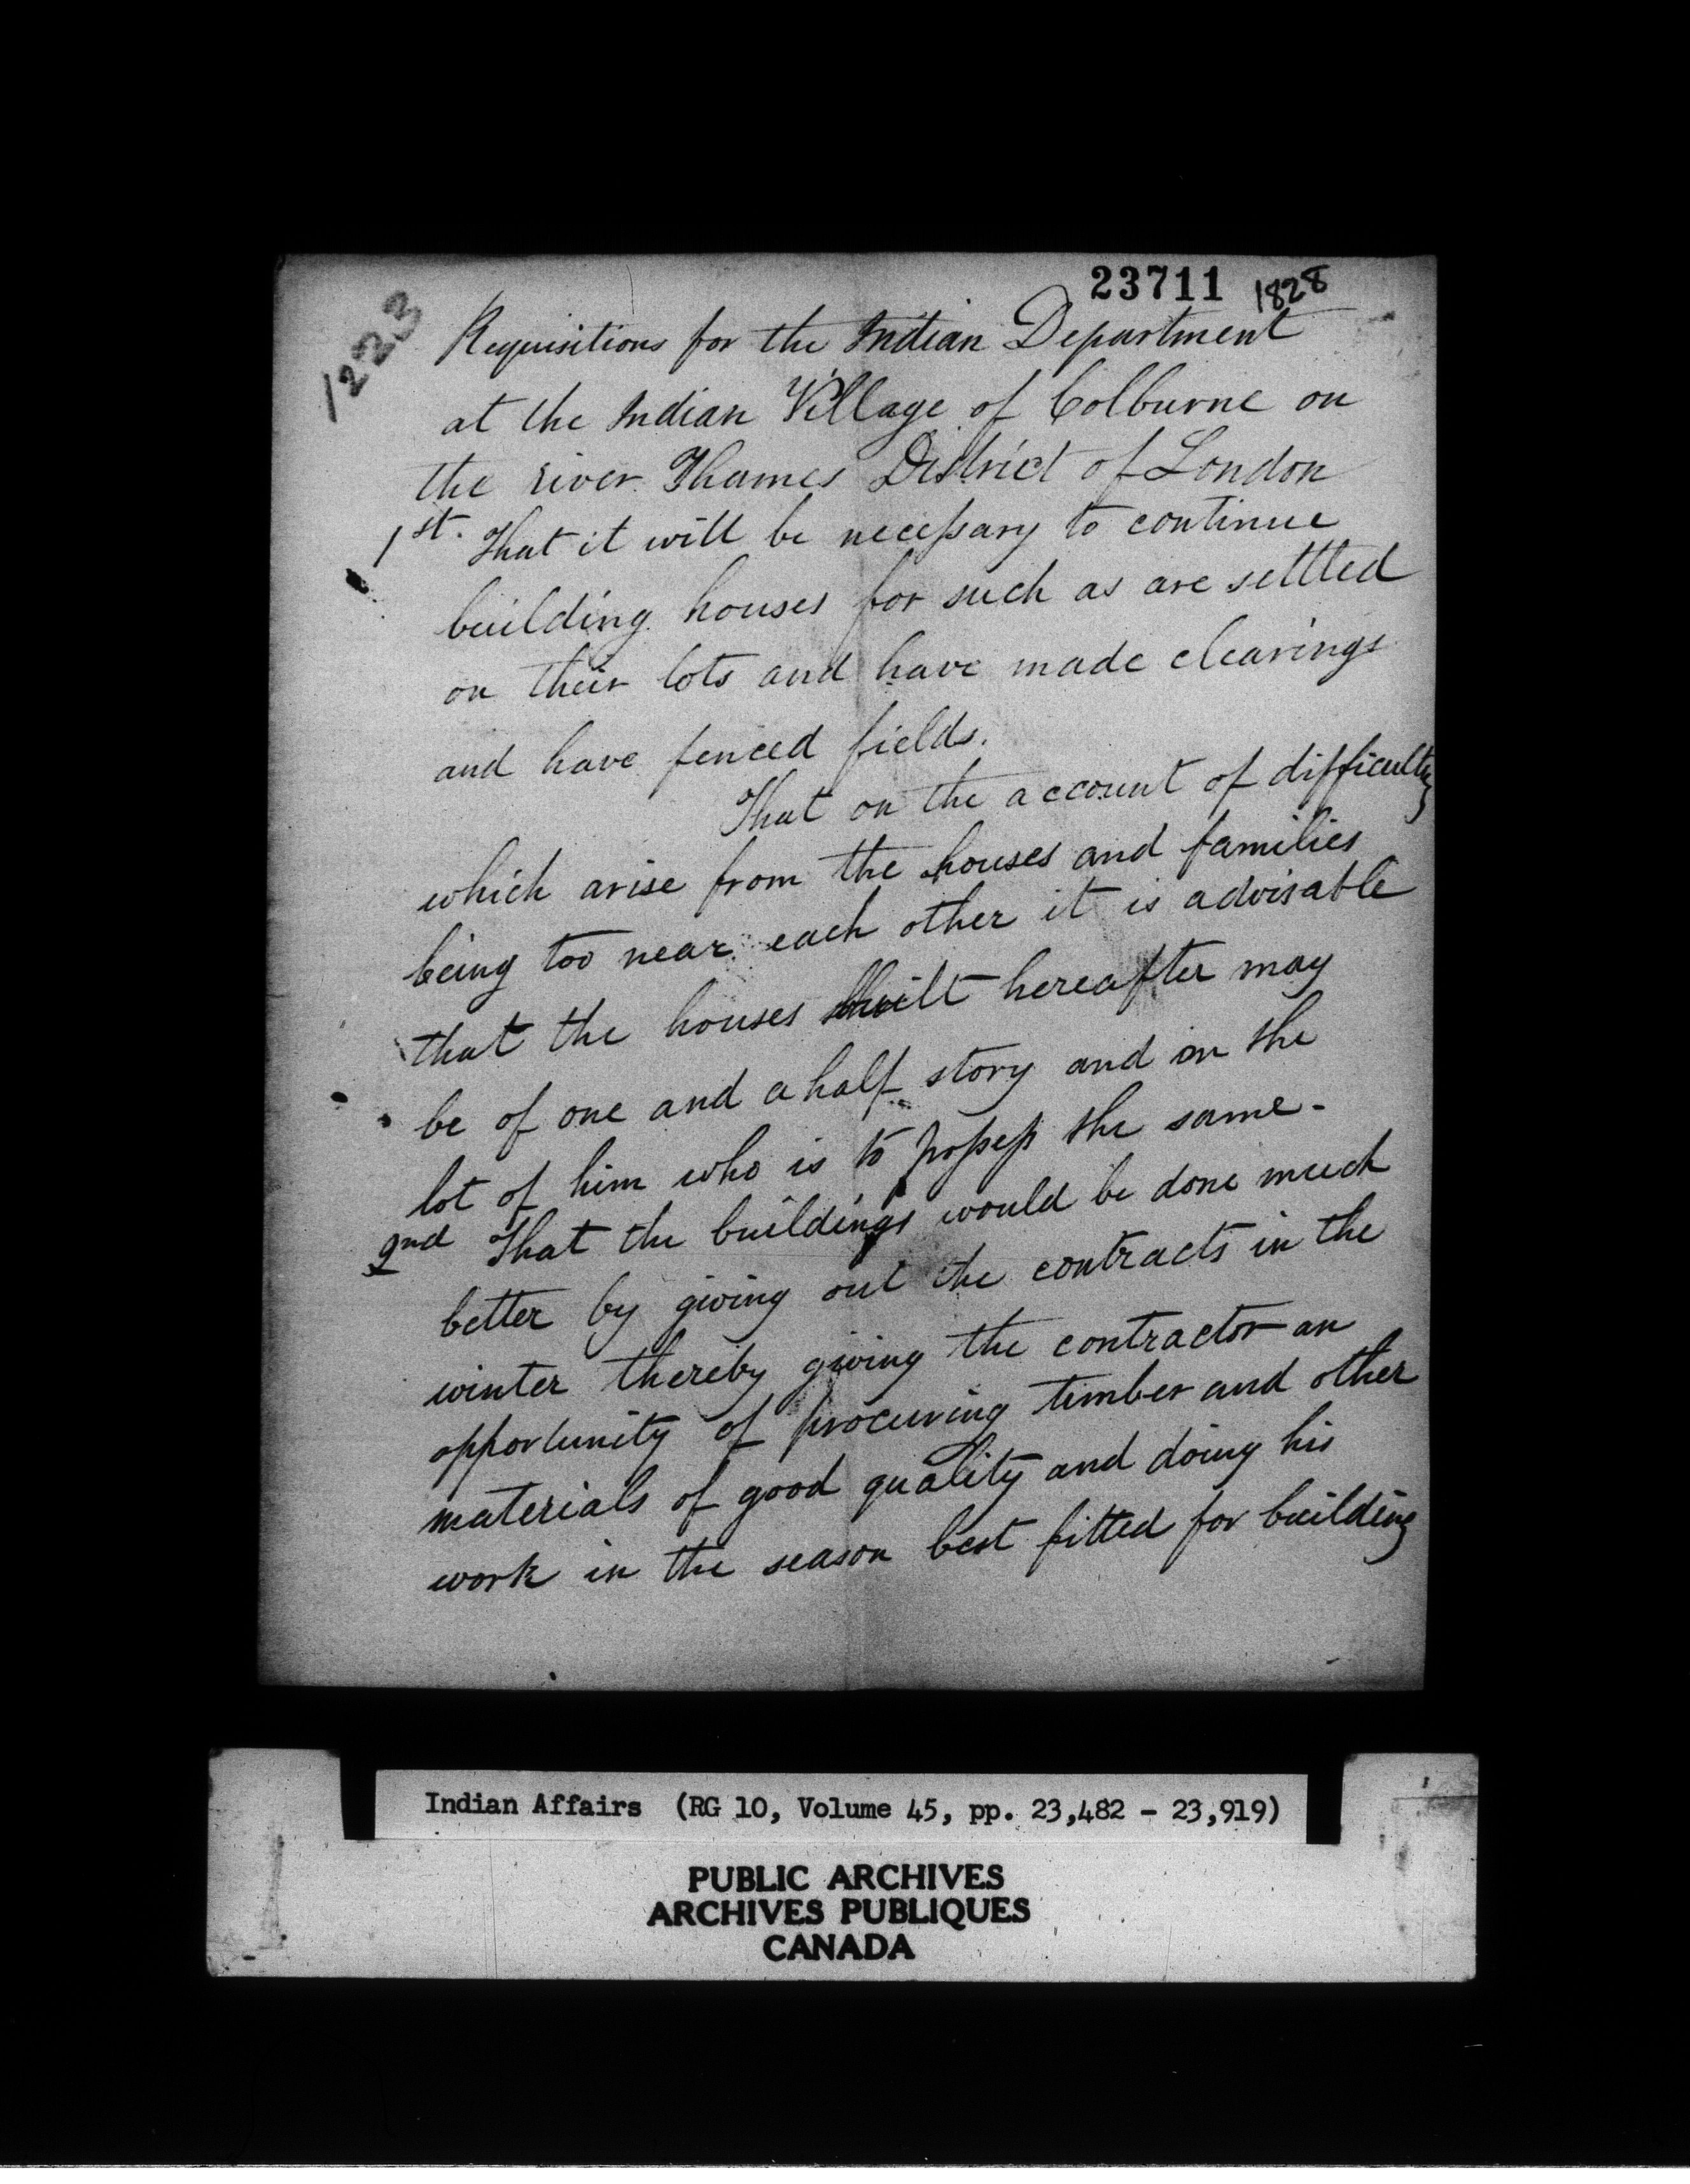 23711 1828
1223
Requisitions for the Indian Department
at the Indian Village of Colburne on
the river Thames District of London
1st. That it will be necessary to continue
building houses for such as are settled
on their lots and have made clearings
and have fenced fields.
That on the account of difficulty
which arise from the houses and families
being too near each other it is advisable
that the houses built hereafter may
be of one and a half story and on the
lot of him who is to possess the same.
2nd That the buildings would be done much
better by giving out the contracts in the
winter thereby giving the contractor an
opportunity of procuring timber and other
materials of good quality and doing his
work in the season best fitted for building
Indian Affairs (RG 10, Volume 45, pp. 23,482 - 23,919)
PUBLIC ARCHIVES
ARCHIVES PUBLIQUES
CANADA